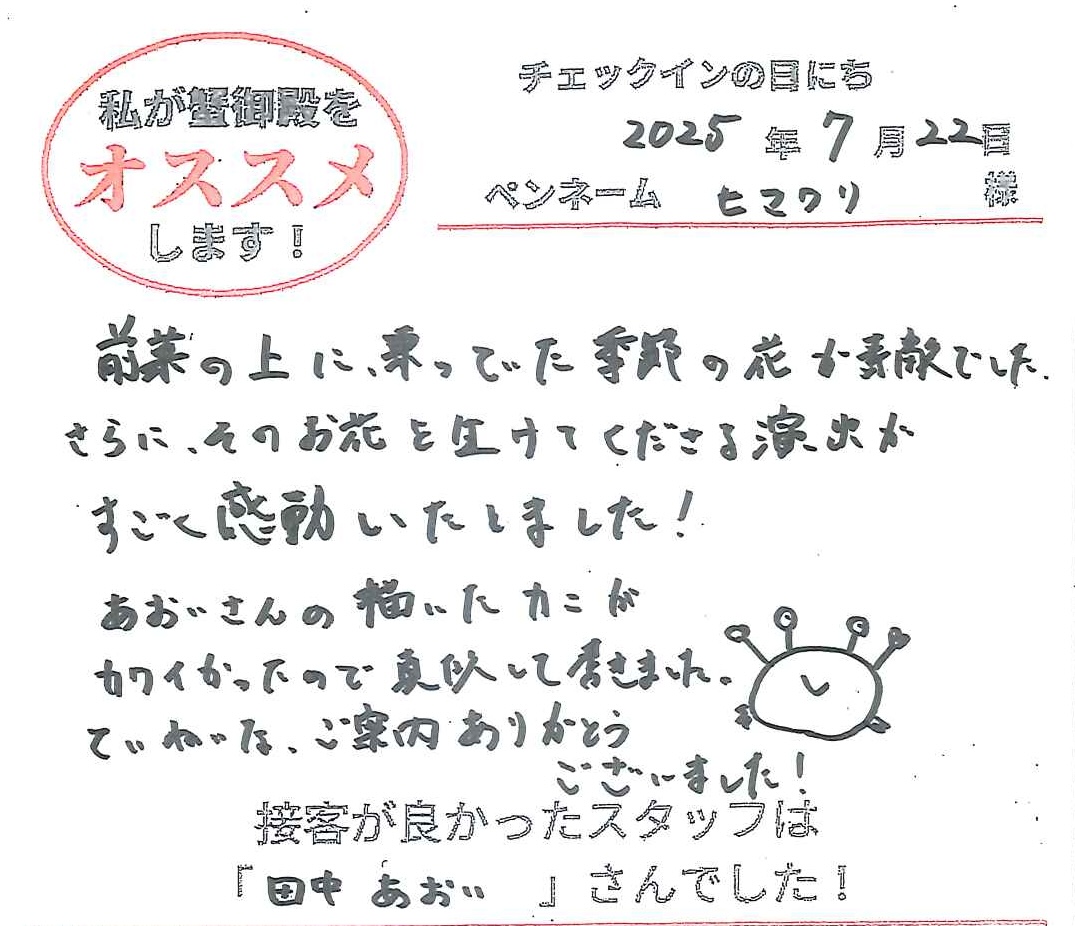 私が蟹御殿を
オススメ
します！
チェックインの日にち
2025年7月22日
ペンネーム ヒマワリ 様
前菜の上に、乗っていた季節の花が素敵でした.
さらに、そのお花を生けてくださる演出が
すごく感動いたしました！
あおいさんの描いたカニが
カワイかったので真似して書きました。
ていねいな、ご案内ありがとう
ございました！
接客が良かったスタッフは
「田中 あおい」さんでした！